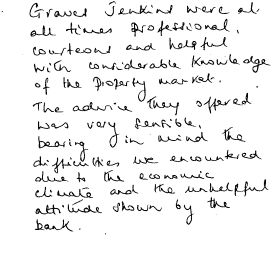 Graves Jenkins were at
all times professional,
courteous and helpful
with considerable knowledge
of the property market.
The advice they offered
was very sensible,
bearing in mind the
difficulties we encountered
due to the economic
climate and the unhelpful
attitude shown by the
bank.